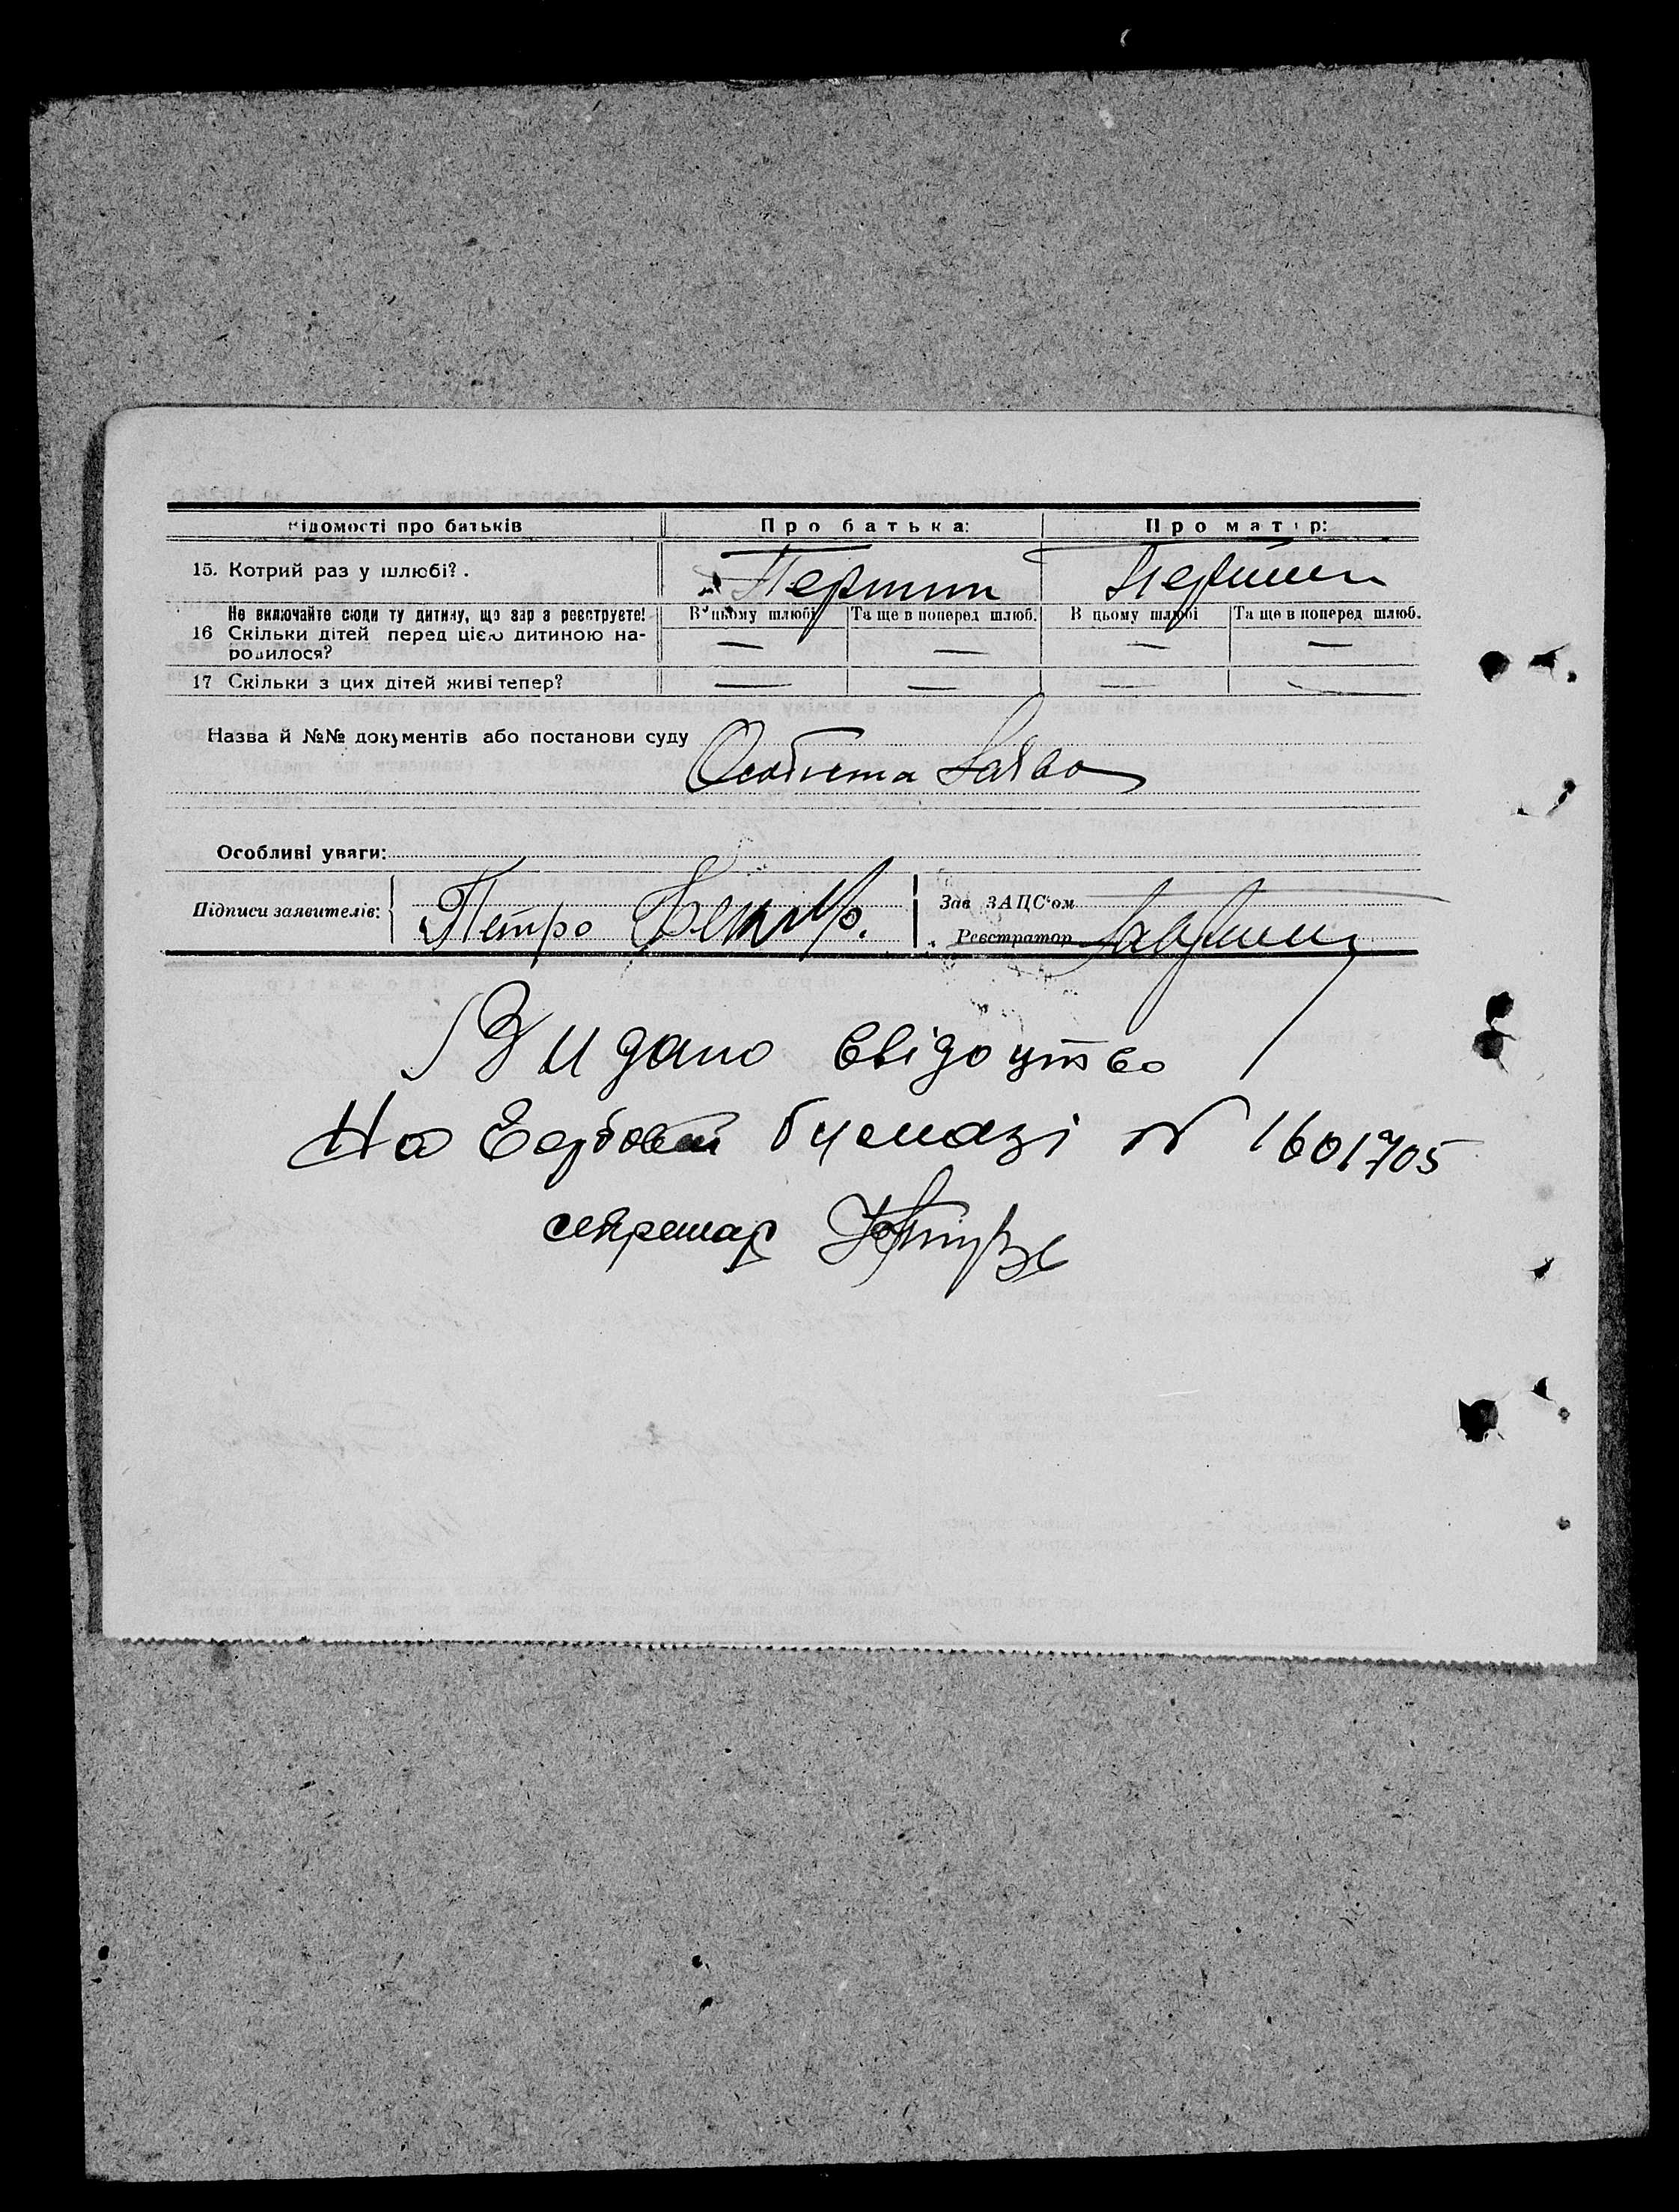 Відомості про батьків Про батька: Про матір:
15. Котрий раз у шлюбі?. Перший Перший
Не включайте сюди ту дитину, що зараз реєструєте! В цьому шлюбі Та ще в поперед шлюб. В цьому шлюбі Та ще в поперед шлюб.
16 Скільки дітей перед цією дитиною на- — — — —
родилося?
17 Скільки з цих дітей живі тепер? — — — —
Назва й №№ документів або постанови суду Особиста заява
Особливі уваги:
Підписи заявителів: Петро
Зав ЗАЦС'ом
Реєстратор
Видано свідоцтво
На Гербовій бумазі № 1601705
секретар